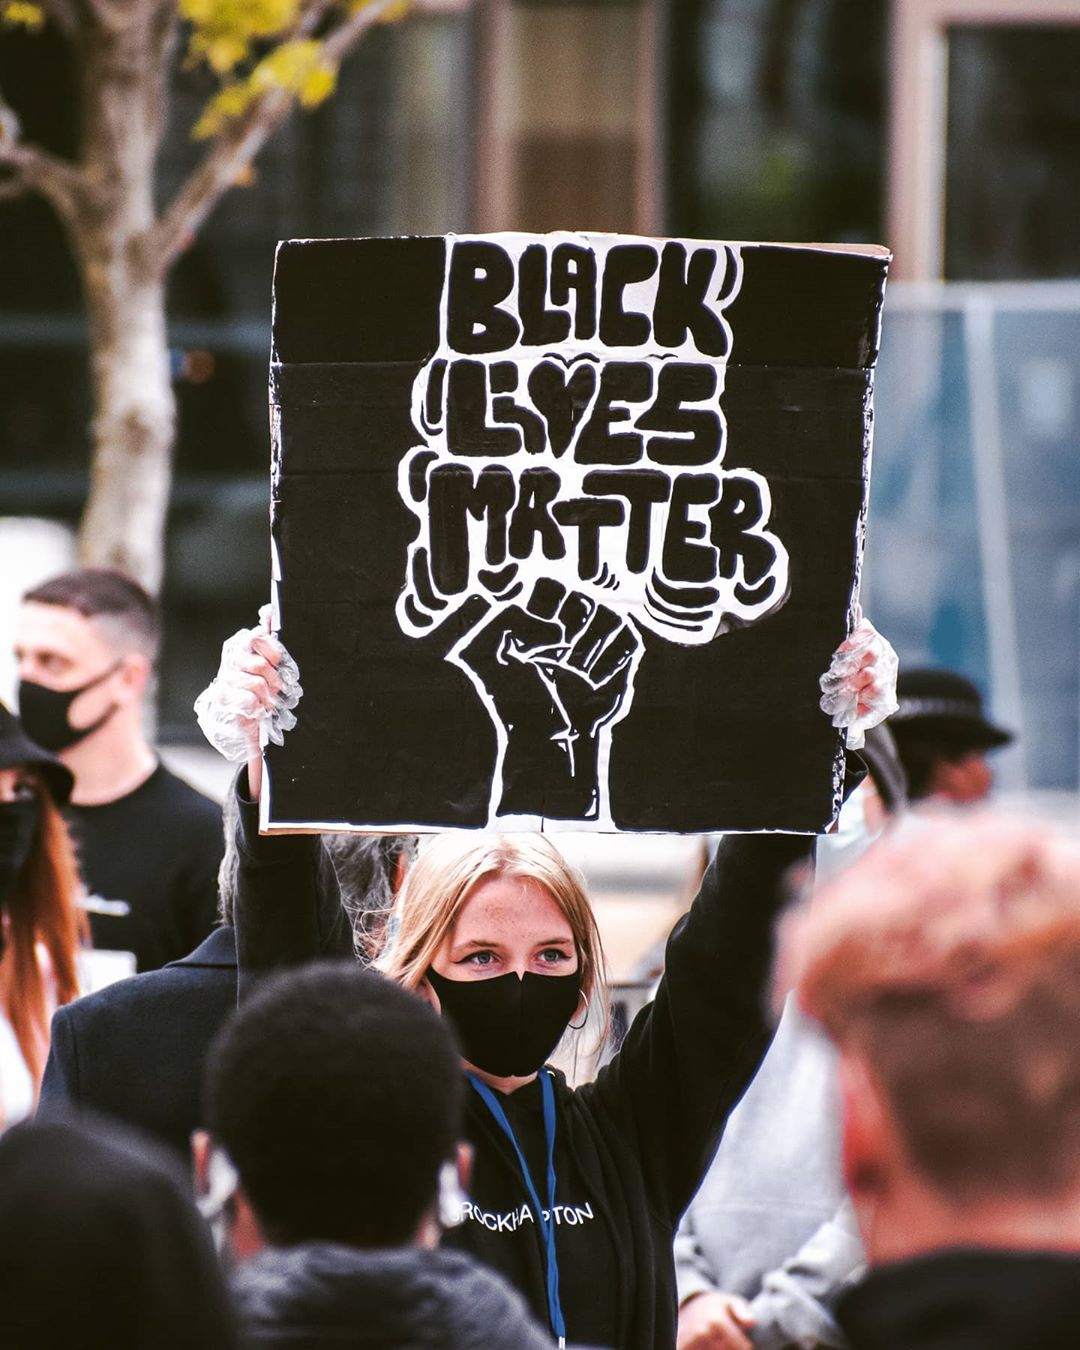 BLACK
LIVES
MATTER
BROCKHAMPTON